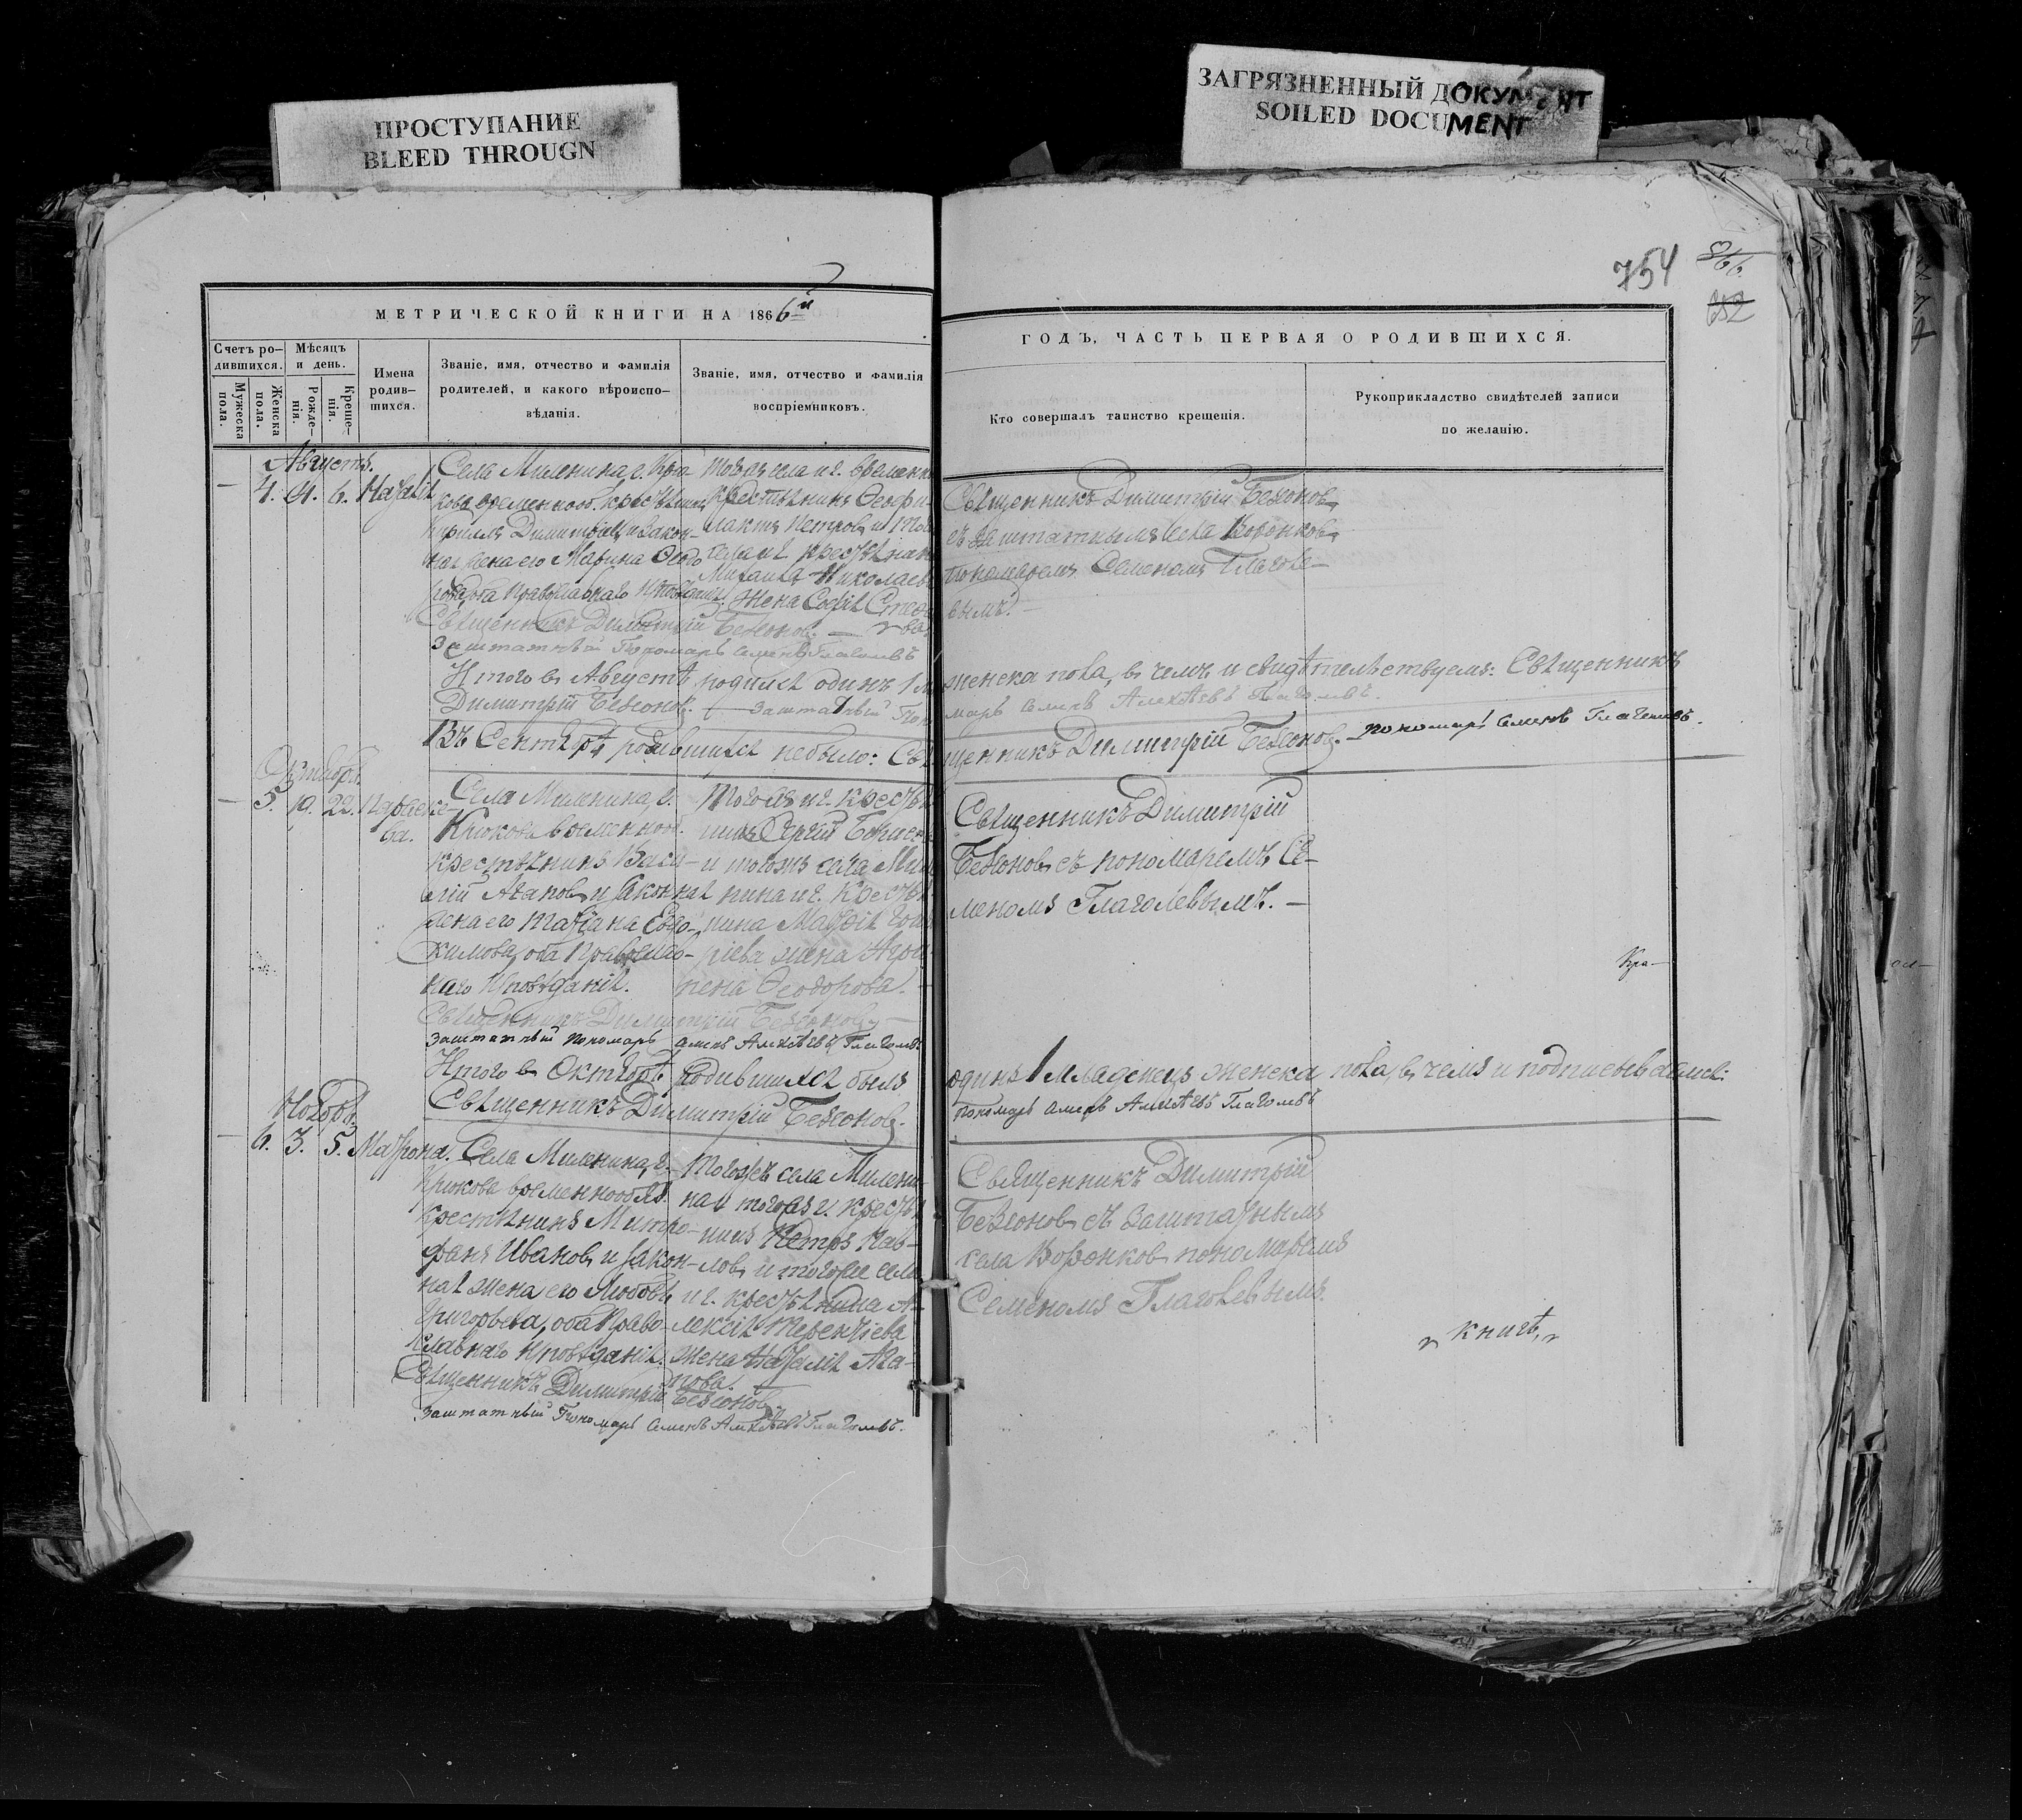 ПРОСТУПАНИЕ
BLEED THROUGN
ЗАГРЯЗНЕННЫЙ ДОКУМЕНТ
SOILED DOCUMENT
754
866
652
МЕТРИЧЕСКОЙ КНИГИ НА 1866й
ГОДЪ, ЧАСТЬ ПЕРВАЯ О РОДИВШИХСЯ.
Счетъ ро-
дившихся.
Мѣсяцъ
и день.
Мужеска
пола.
Женска
пола.
Рожде-
нія.
Креще-
нія.
Имена
родив-
шихся.
Званіе, имя, отчество и фамилія
родителей, и какого вѣроиспо-
вѣданія.
Званіе, имя, отчество и фамилія
воспріемниковъ.
Кто совершалъ таинство крещенія.
Рукоприкладство свидѣтелей записи
по желанію.
Августъ.
4. 4. 6.
Села Миленина г. Крю-
кова временнооб. крестьянинъ
Кириллъ Димитріевъ и закон-
ная жена его Марина Ѳедо
оба Православнаго
Тогожъ села и г. временн
крестьянинъ Ѳеофи-
лактъ Петровъ и
села и г. крестьянин
Михаила Николаев
жена Софія
Священникъ Димитрій Безсоновъ
съ заштатнымъ села Воронковъ
пономаремъ Семеномъ Глаголе-
вымъ.
Священникъ Димитрій Безсоновъ.
Заштатный Пономарь Семенъ Глаголевъ
Итого въ Августѣ родился одинъ 1 м женска пола, въ чемъ и свидѣтельствуемъ: Священникъ
Димитрій Безсоновъ. Заштатный Пономарь Семенъ Алексѣевъ Глаголевъ.
Въ Сентябрѣ родившихся небыло: Священникъ Димитрій Безсоновъ. Пономарь Семенъ Глаголевъ.
Октябрь
5. 19. 22. Параске-
ва.
Села Миленина г.
Крюкова временнооб.
крестьянинъ Васи-
лій Агаповъ и законная
жена его Татіана Евдо-
кимова, оба Православ-
наго Исповѣданія.
Тогожъ и г. крестья
нинъ Сергій
и тогожъ села Миле
нина и г. крестья
нина Матѳія Гри
ріева жена Агри
пена Ѳеодорова.
Священникъ Димитрій
Безсоновъ съ пономаремъ Се-
меномъ Глаголевымъ.
Священникъ Димитрій Безсоновъ
Заштатный пономарь Семенъ Алексѣевъ Глаголевъ
Кра-
Итого въ Октябрѣ родившихся былъ одинъ 1 младенецъ женска пола, въ чемъ и подписываемся:
Священникъ Димитрій Безсоновъ. Пономарь Семенъ Алексѣевъ Глаголевъ
Ноябрь.
6. 3. 5. Матрона.
Села Миленина, г.
Крюкова временнообяз.
крестьянинъ Митро-
фанъ Ивановъ и закон-
ная жена его Любовь
Григорьева, оба Право-
славнаго Исповѣданія.
Тогожъ села Милени-
на и тогожъ г. крестья
нинъ Петръ Пав-
ловъ и тогоже села
и г. крестьянина А-
лексія Терентіева
жена Наталія Ага-
пова.
Священникъ Димитрій
Безсоновъ съ заштатнымъ
села Воронковъ пономаремъ
Семеномъ Глаголевымъ.
Священникъ Димитрій Безсоновъ.
Заштатный Пономарь Семенъ Алексѣевъ Глаголевъ.
книгѣ,